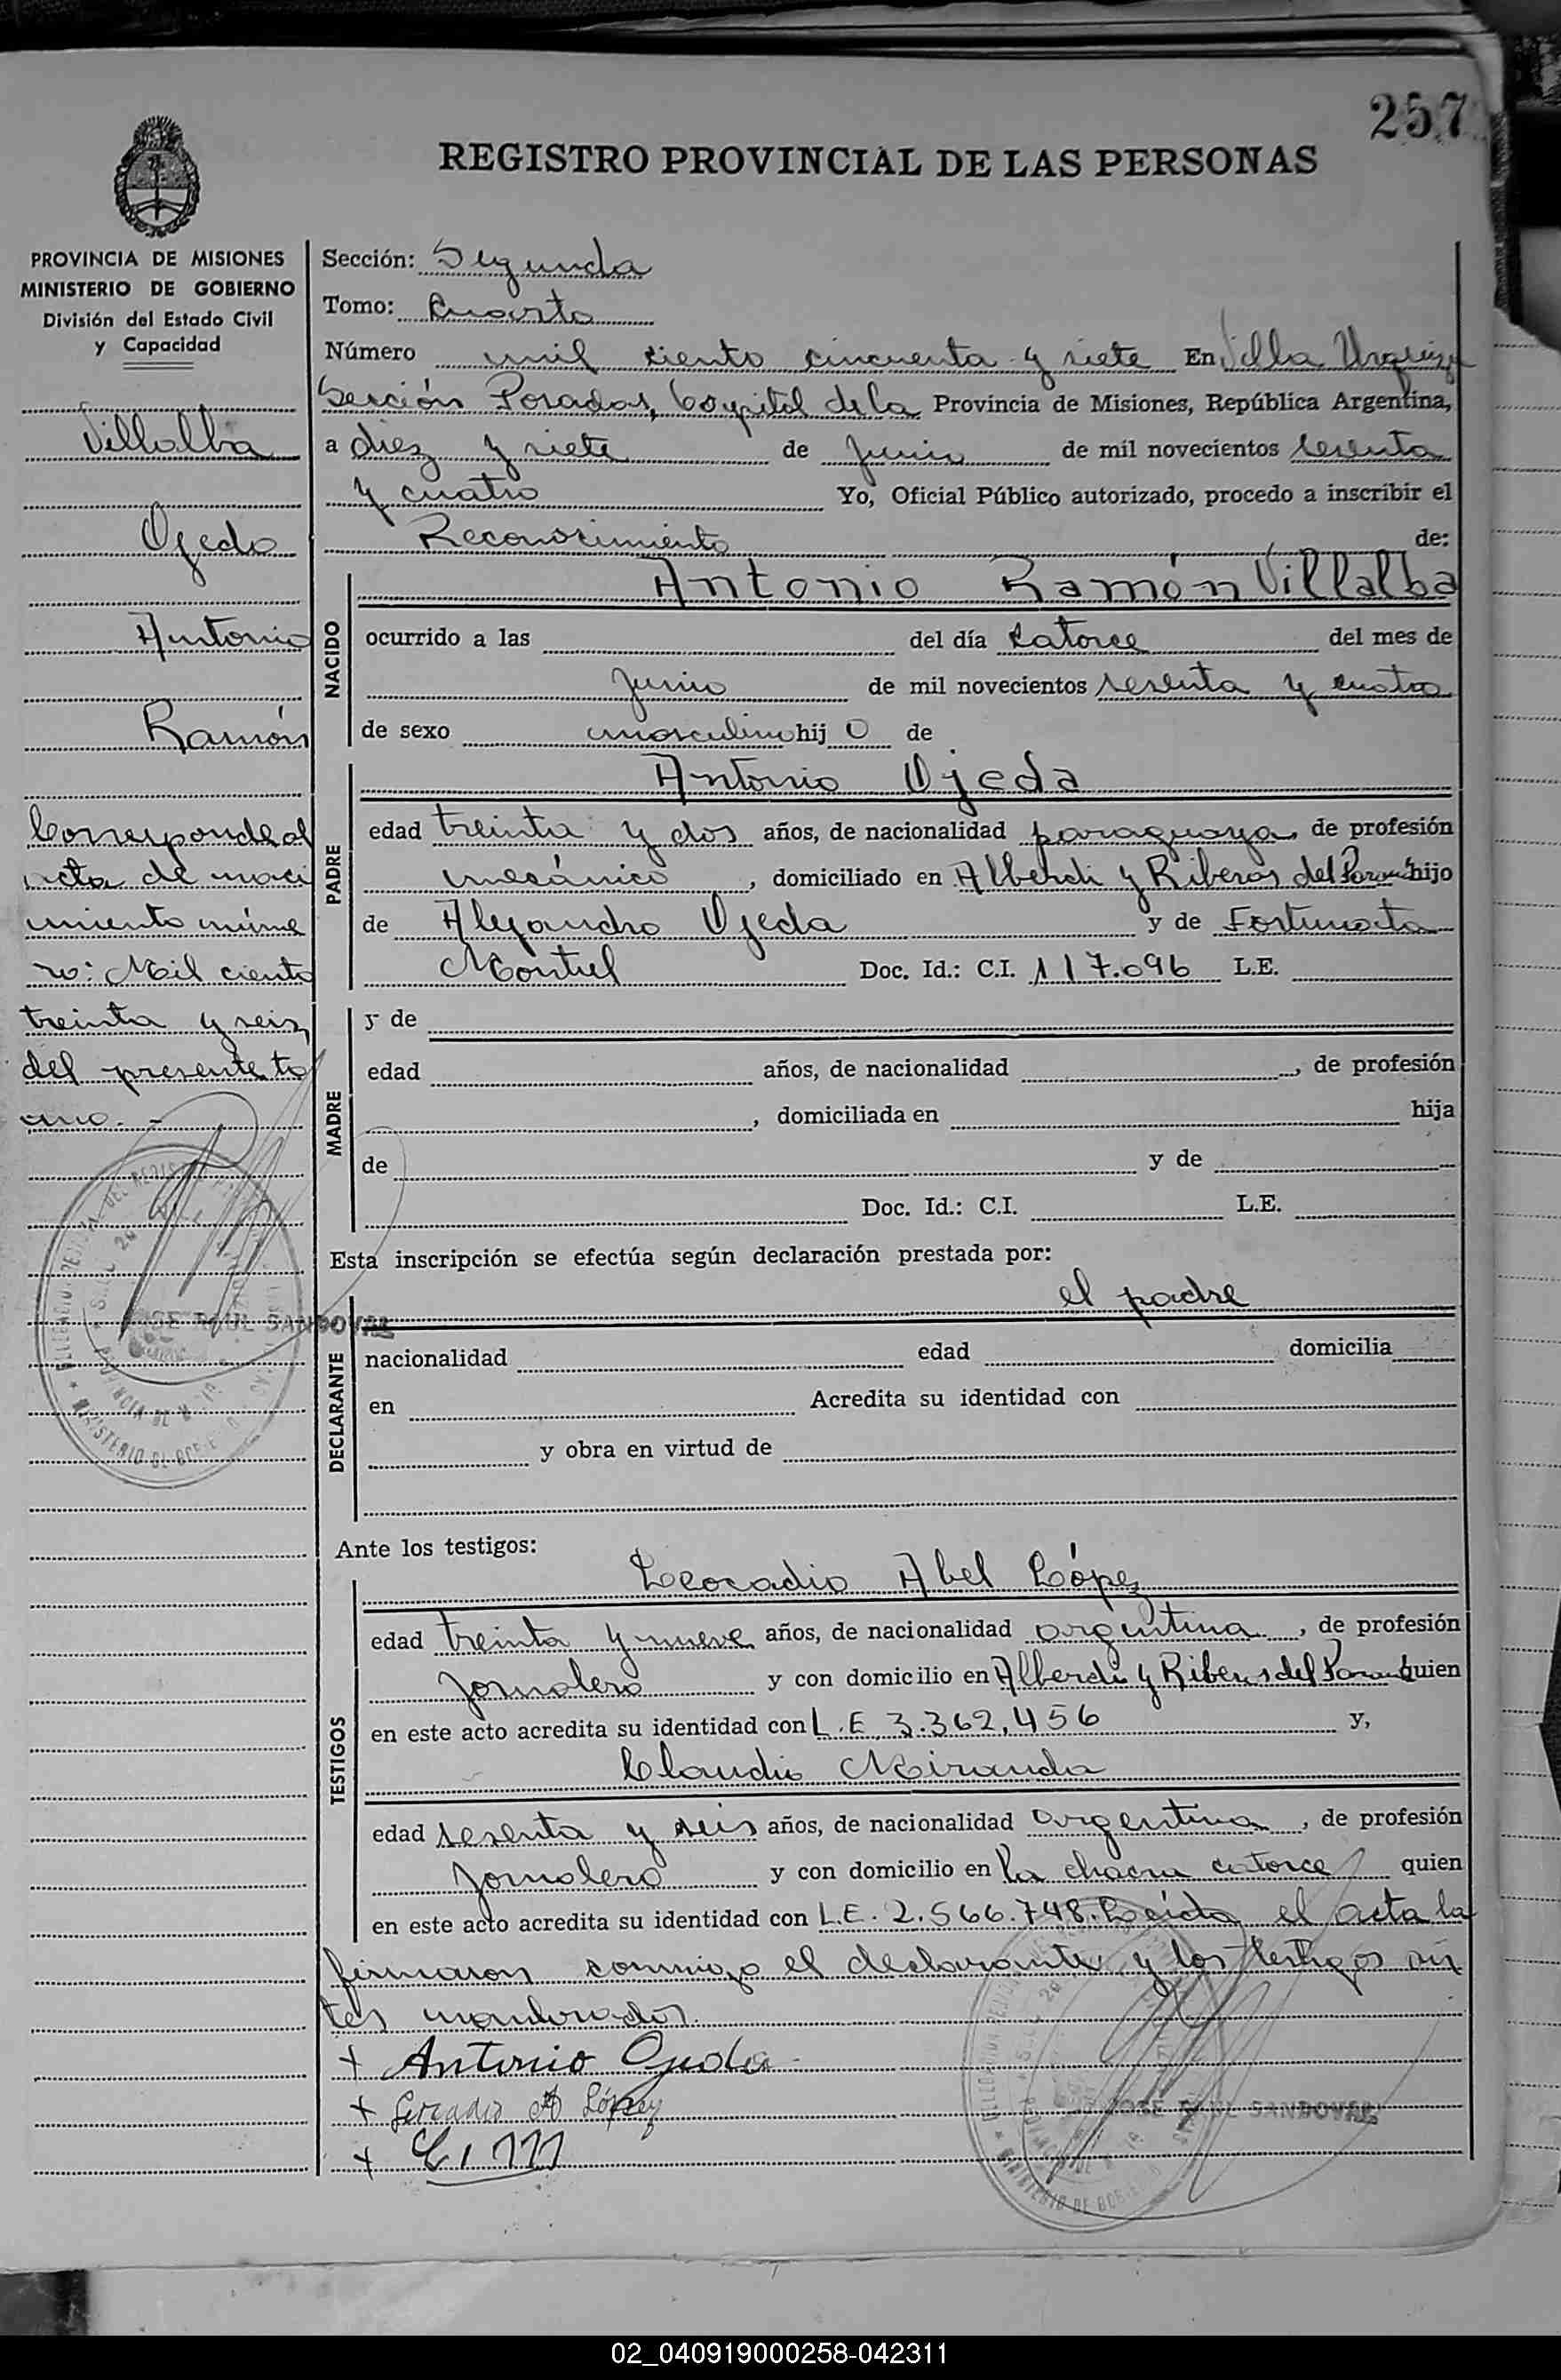 257
REGISTRO PROVINCIAL DE LAS PERSONAS
PROVINCIA DE MISIONES
MINISTERIO DE GOBIERNO
División del Estado Civil
y Capacidad
Villalba
Ojeda
Antonio
Ramón
Corresponde al
acta de naci
miento núme
ro: Mil ciento
treinta y seis
del presente to
mo. -
JOSE RAUL SANDOVAL
Sección: Segunda
Tomo: Cuarto
Número mil ciento cincuenta y siete En Villa Urquiza
Sección Posadas, Capital de la Provincia de Misiones, República Argentina,
a diez y siete de Junio de mil novecientos sesenta
y cuatro Yo, Oficial Público autorizado, procedo a inscribir el
Reconocimiento de:
NACIDO
Antonio Ramón Villalba
ocurrido a las del día catorce del mes de
Junio de mil novecientos sesenta y cuatro
de sexo masculino hij o de
PADRE
Antonio Ojeda
edad treinta y dos años, de nacionalidad paraguaya, de profesión
mecánico, domiciliado en Alberdi y Riberas del Paraná hijo
de Alejandro Ojeda y de Fortunata
Montiel Doc. Id.: C.I. 117.096 L.E.
MADRE
y de
edad años, de nacionalidad , de profesión
, domiciliada en hija
de y de
Doc. Id.: C.I. L.E.
Esta inscripción se efectúa según declaración prestada por:
DECLARANTE
el padre
nacionalidad edad domicilia
en Acredita su identidad con
y obra en virtud de
Ante los testigos:
TESTIGOS
Leocadio Abel López
edad treinta y nueve años, de nacionalidad argentina, de profesión
Jornalero y con domicilio en Alberdi y Riberas del Paraná quien
en este acto acredita su identidad con L.E 3.362,456 y,
Claudio Miranda
edad sesenta y seis años, de nacionalidad argentina, de profesión
Jornalero y con domicilio en la chacra catorce quien
en este acto acredita su identidad con L.E. 2.566.748. Leída el acta la
firmaron conmigo el declarante y los testigos an
tes nombrados.
+ Antonio Ojeda
+ Leocadio A López
+
JOSE RAUL SANDOVAL
02_040919000258-042311